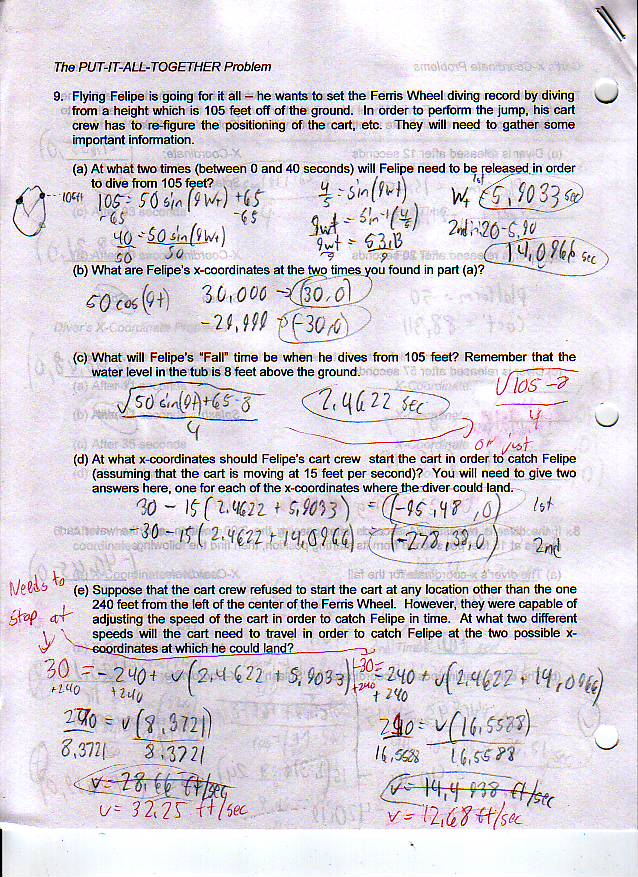 The PUT-IT-ALL-TOGETHER Problem
9. Flying Felipe is going for it all – he wants to set the Ferris Wheel diving record by diving
from a height which is 105 feet off of the ground. In order to perform the jump, his cart
crew has to re-figure the positioning of the cart, etc. They will need to gather some
important information.
(a) At what two times (between 0 and 40 seconds) will Felipe need to be released in order
to dive from 105 feet?
105ft
105 = 50 sin(9wt) +65
-65 -65
40 = 50 sin(9wt)
50 50
4/5 = sin(9wt)
9wt = sin⁻¹(4/5)
9wt = 53.13
9 9
1st
Wt = 5.9033 sec
2nd 20-5.90
14.0966 sec
(b) What are Felipe's x-coordinates at the two times you found in part (a)?
50 cos(9t) 30.000 → (30,0)
-29.999 → (-30,0)
(c) What will Felipe's "Fall" time be when he dives from 105 feet? Remember that the
water level in the tub is 8 feet above the ground.
√50 sin(9t)+65-8
4
2.4622 sec
√105-8
4
or just
(d) At what x-coordinates should Felipe's cart crew start the cart in order to catch Felipe
(assuming that the cart is moving at 15 feet per second)? You will need to give two
answers here, one for each of the x-coordinates where the diver could land.
30 - 15(2.4622 + 5.9033) = (-95.48, 0) 1st
-30 - 15(2.4622 + 14.0966) (-278.38, 0) 2nd
(e) Suppose that the cart crew refused to start the cart at any location other than the one
240 feet from the left of the center of the Ferris Wheel. However, they were capable of
adjusting the speed of the cart in order to catch Felipe in time. At what two different
speeds will the cart need to travel in order to catch Felipe at the two possible x-
coordinates at which he could land?
Needs to
stop at
30 = -240 + v(2.4622 + 5.9033)
+240 +240
270 = v(8.3721)
8.3721 8.3721
v = 28.66 ft/sec
v = 32.25 ft/sec
-30 = -240 + v(2.4622 + 14.0966)
+240 +240
210 = v(16.5588)
16.5588 16.5588
v = 14.4938 ft/sec
v = 12.68 ft/sec